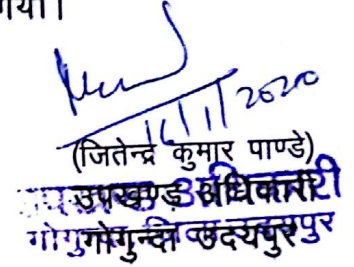 गया।
16/1/2020
(जितेन्द्र कुमार पाण्डे)
उपखण्ड अधिकारी
गोगुन्दा उदयपुर